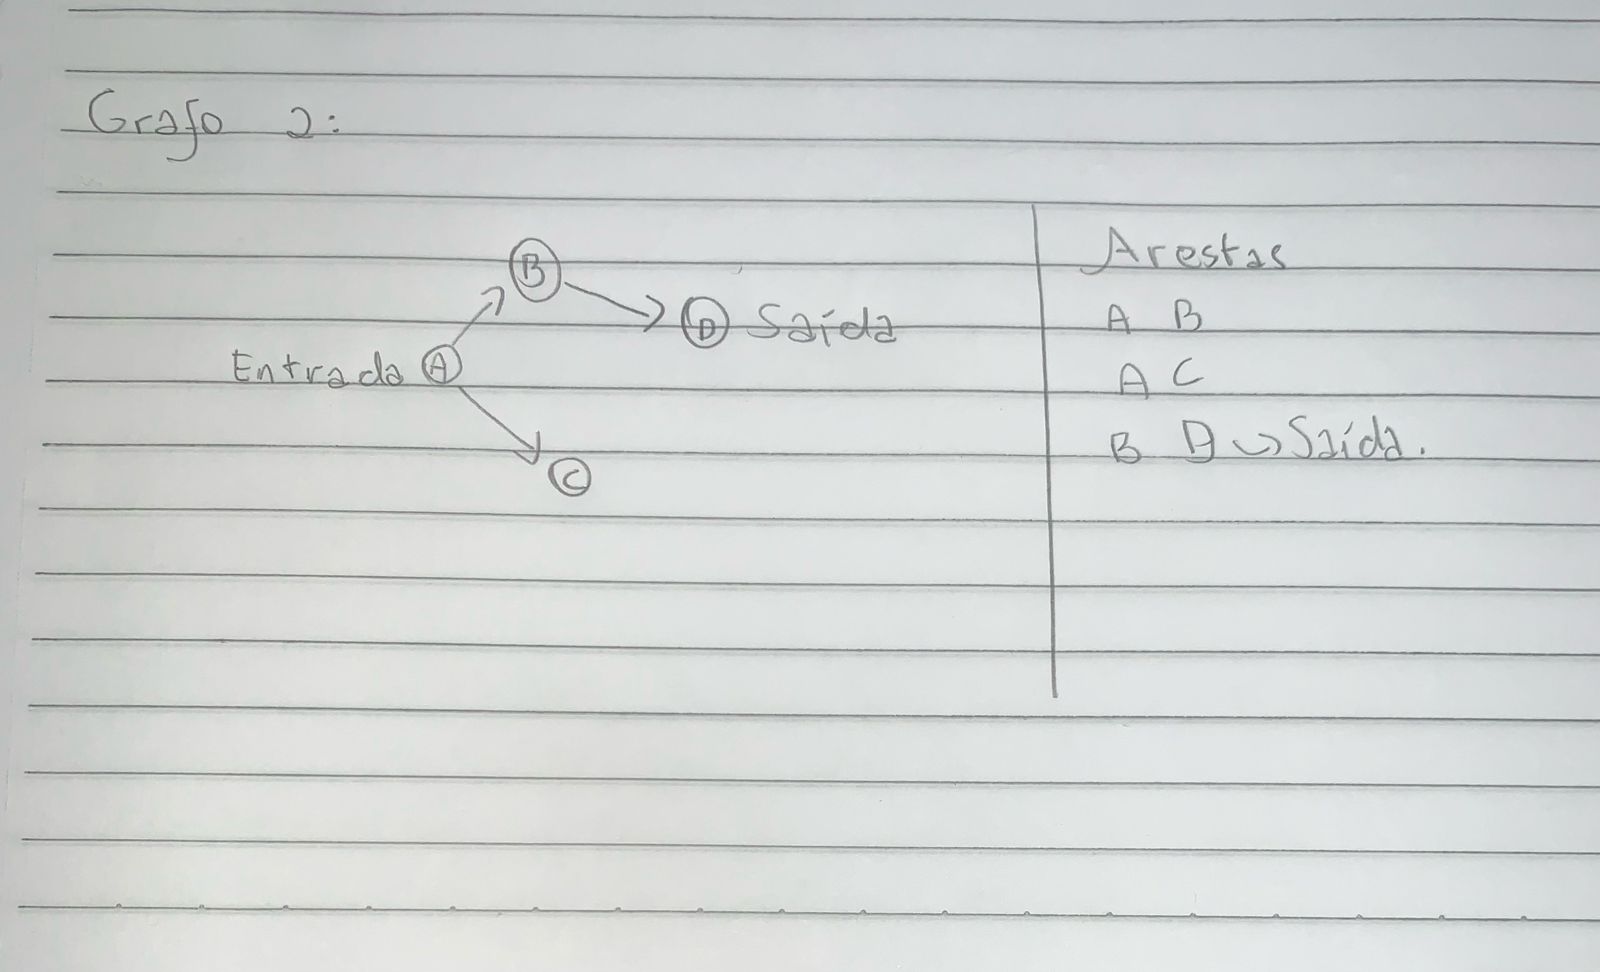 Grafo 2:
B
D Saída
Entrada A
C
Arestas
A B
A C
B D ↪ Saída.